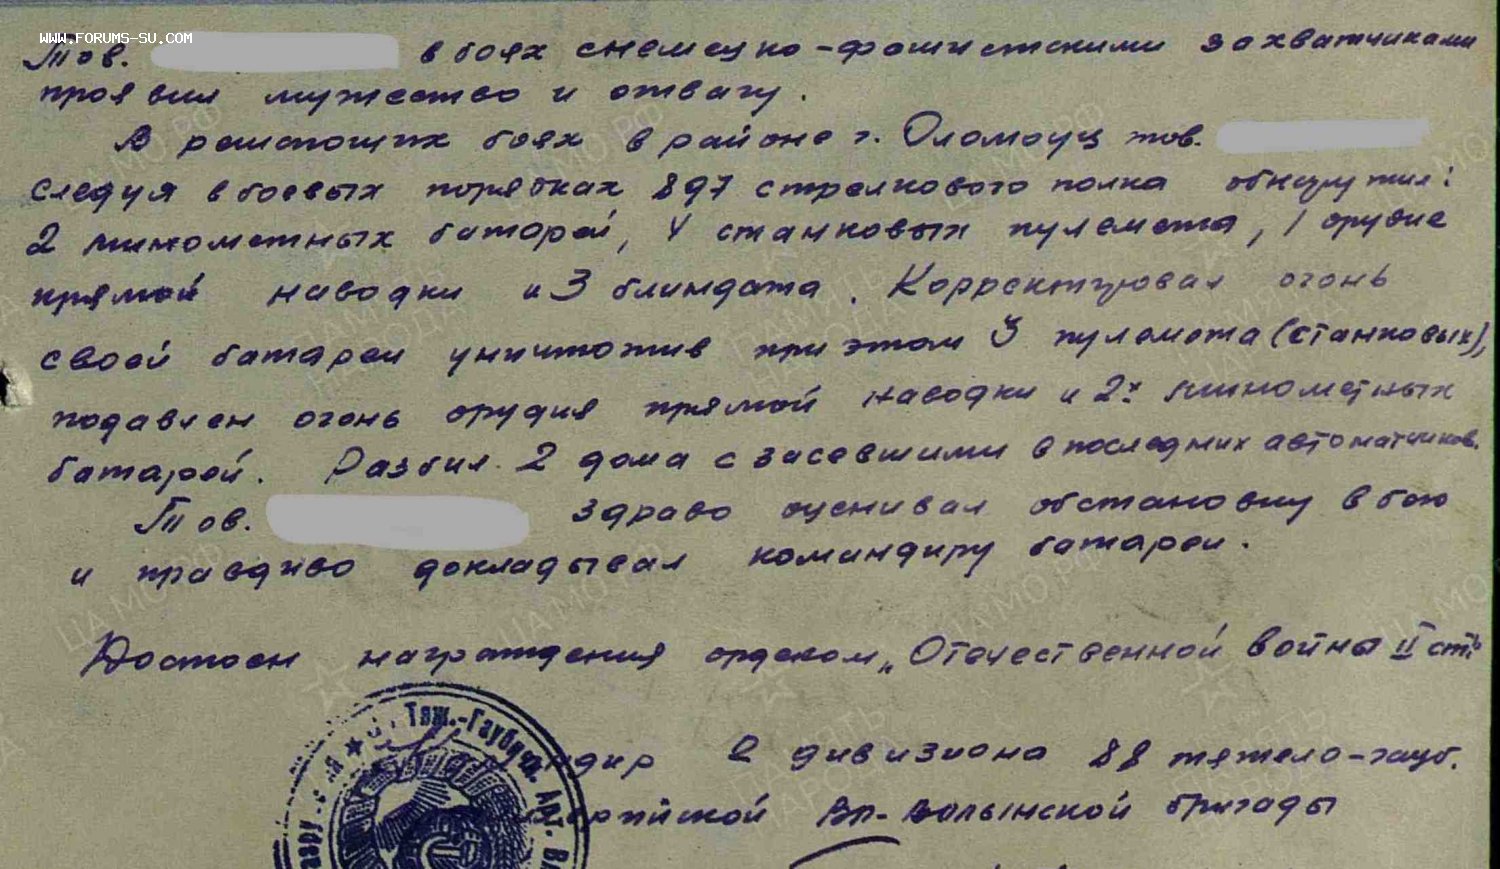 WWW.FORUMS-SU.COM
Тов. в боях с немецко-фашистскими захватчиками
проявил мужество и отвагу.
В решающих боях в районе г. Оломоуц тов.
следуя в боевых порядках 897 стрелкового полка обнаружил:
2 минометных батареи, 4 становых пулемета, 1 орудие
прямой наводки и 3 блиндажа. Корректировал огонь
своей батареи уничтожив при этом 3 пулемета (станковых),
подавлен огонь орудия прямой наводки и 2х минометных
батарей. Разбил 2 дома с засевшими в последних автоматчиков.
Тов. здраво оценивал обстановку в бою
и правдиво докладывал командиру батареи.
Достоен награждения орденом „Отечественной войны II ст."
дир 2 дивизиона 88 тяжело-гауб.
Вл.-Волынской бригады
Тяж.-Гаубич. Арт.
ЦА МО РФ
ПАМЯТЬ НАРОДА